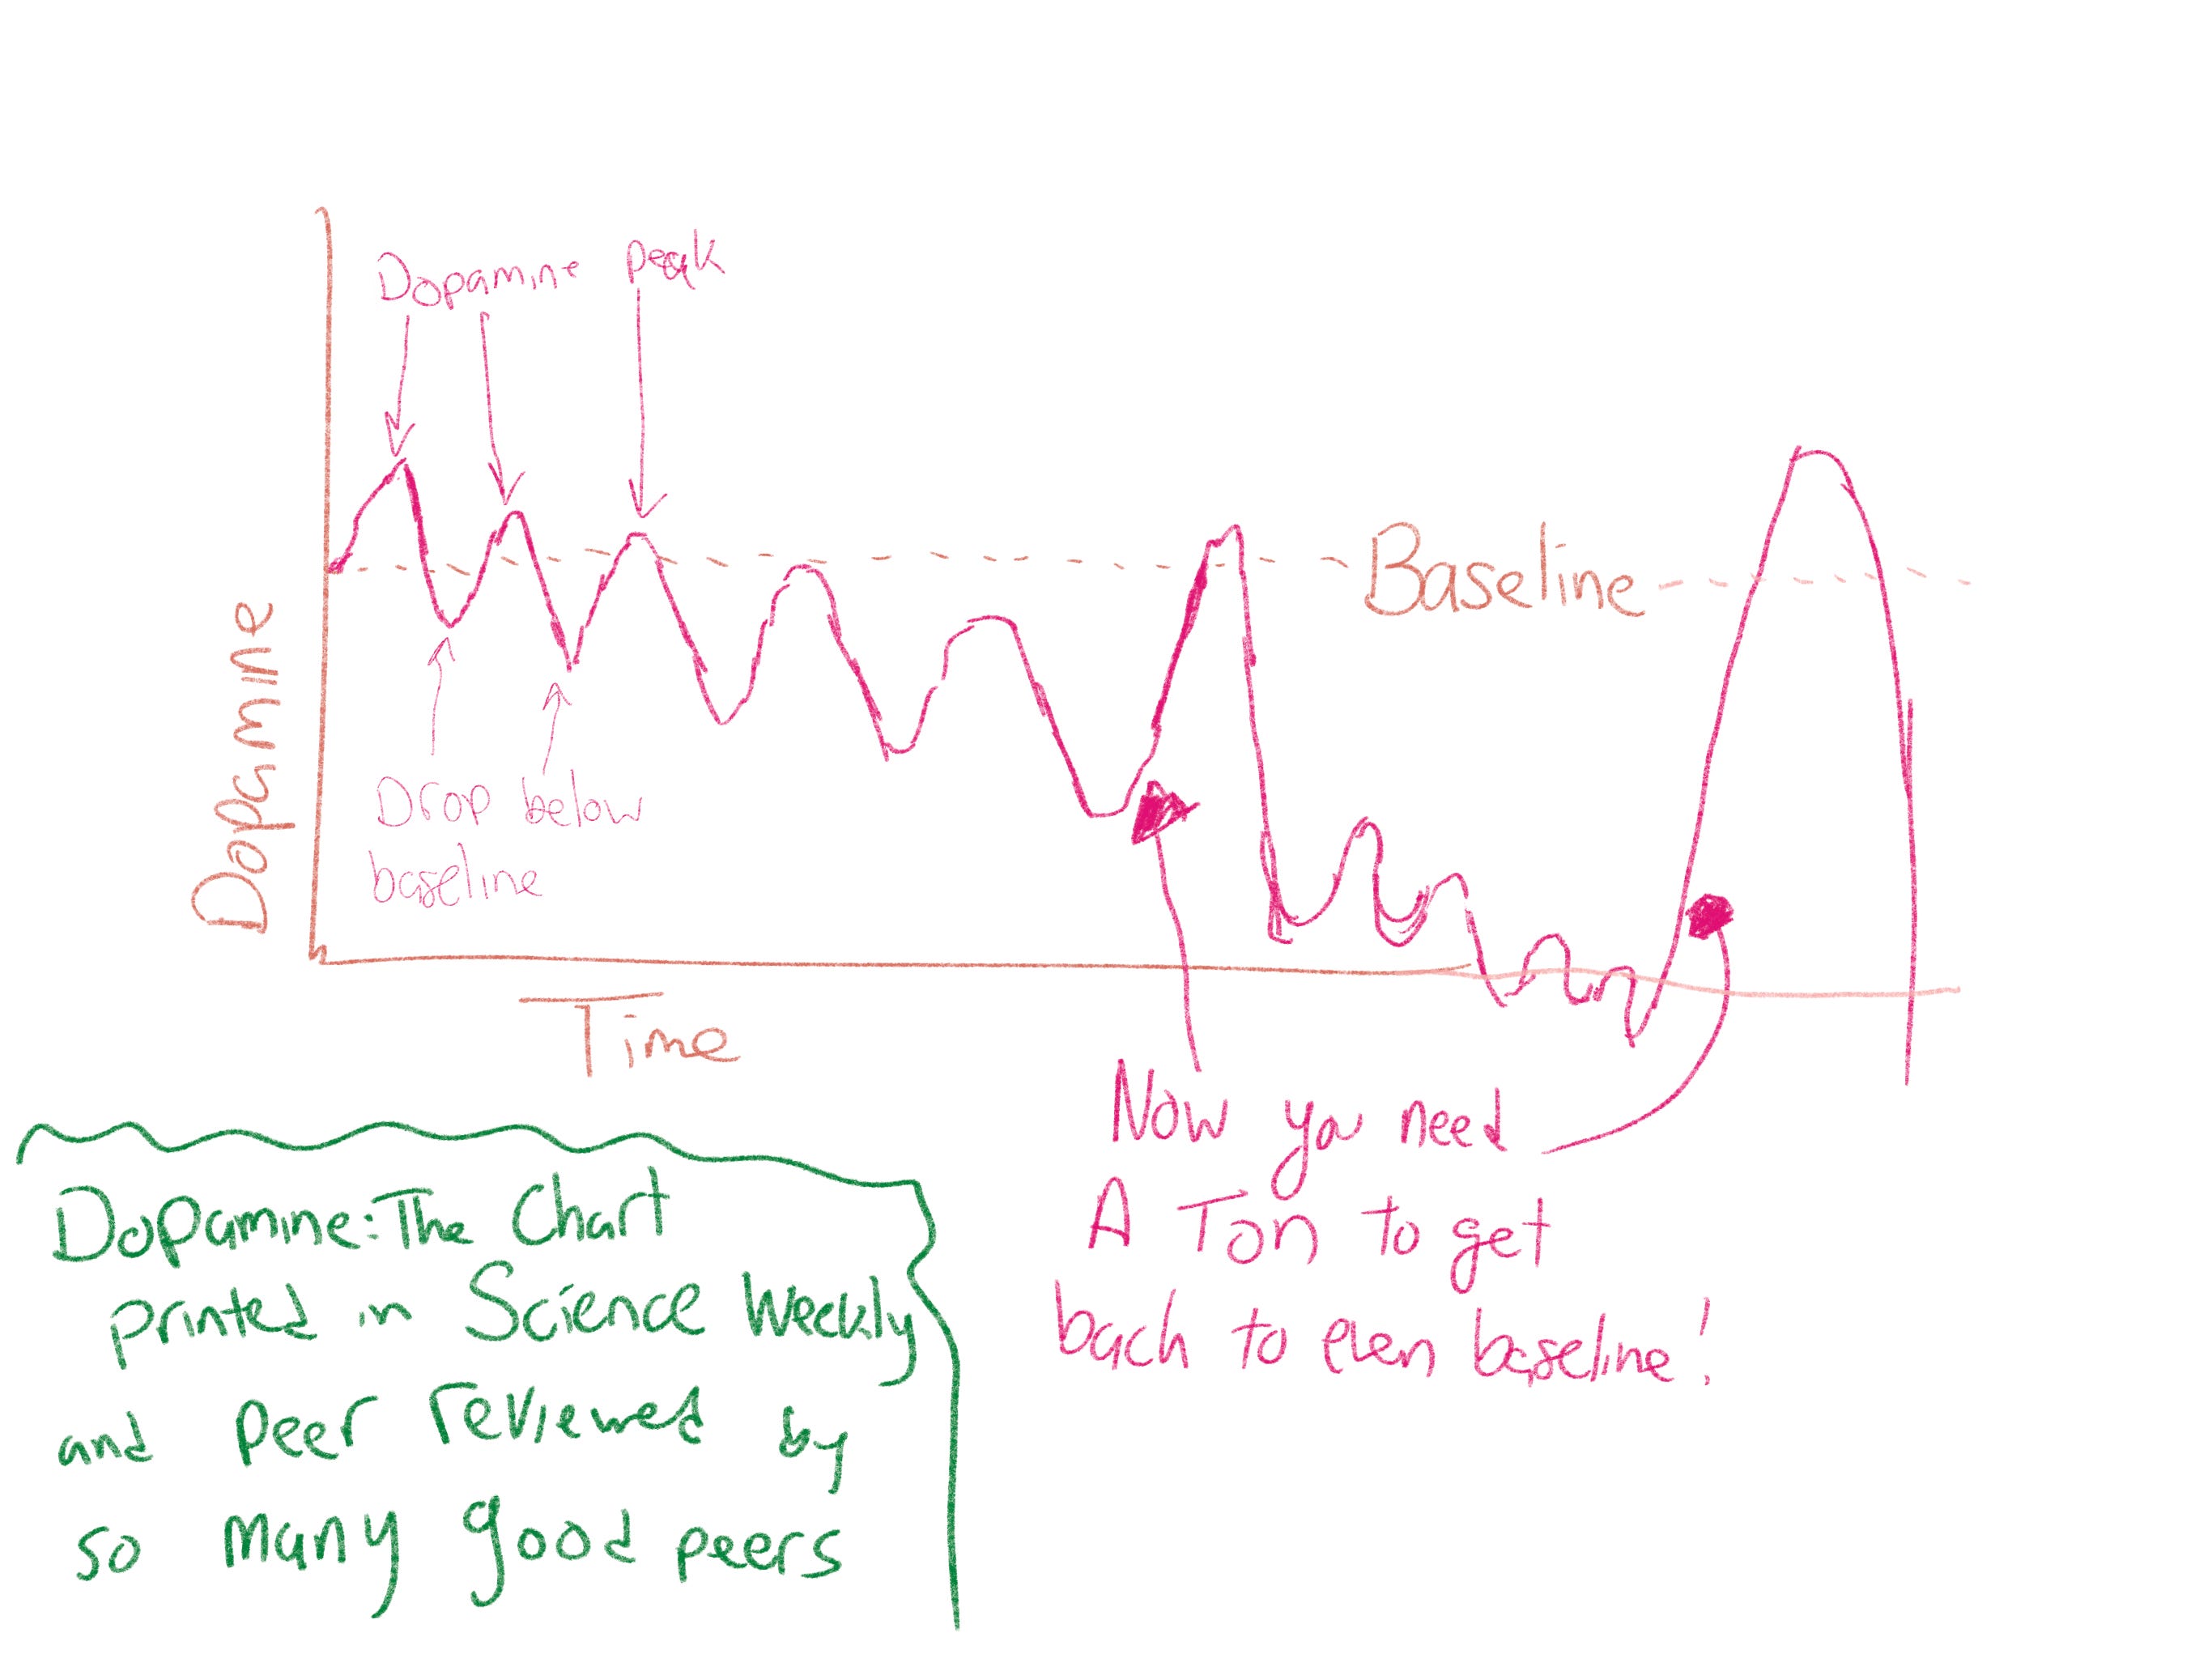 Dopamine peak
Baseline
Dopamine
Drop below
baseline
Time
Now you need
A Ton to get
back to even baseline!
Dopamine: The Chart
printed in Science Weekly
and peer reviewed by
so many good peers